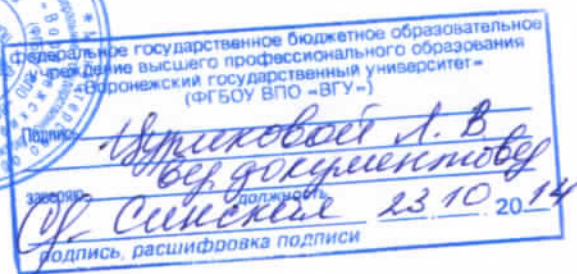 Федеральное государственное бюджетное образовательное
учреждение высшего профессионального образования
«Воронежский государственный университет»
(ФГБОУ ВПО «ВГУ»)
Подпись Цуриковой Л. В
заверяю вед документовед
должность
Синская 23 10 2014
подпись, расшифровка подписи